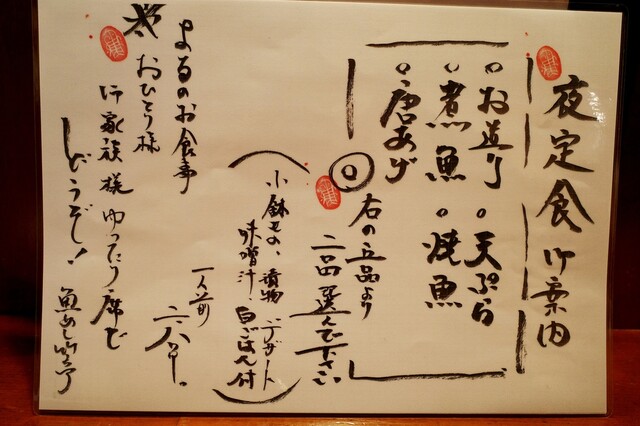 夜定食御案内
○お造り ○天ぷら
○煮魚 ○焼魚
○唐あげ
◎右の五品より
二品選んで下さい
小鉢もの、漬物 デザート
味噌汁・白ごはん付
一人前
よるのお食事
おひとり様
御家族様ゆったり席で
どうぞ!